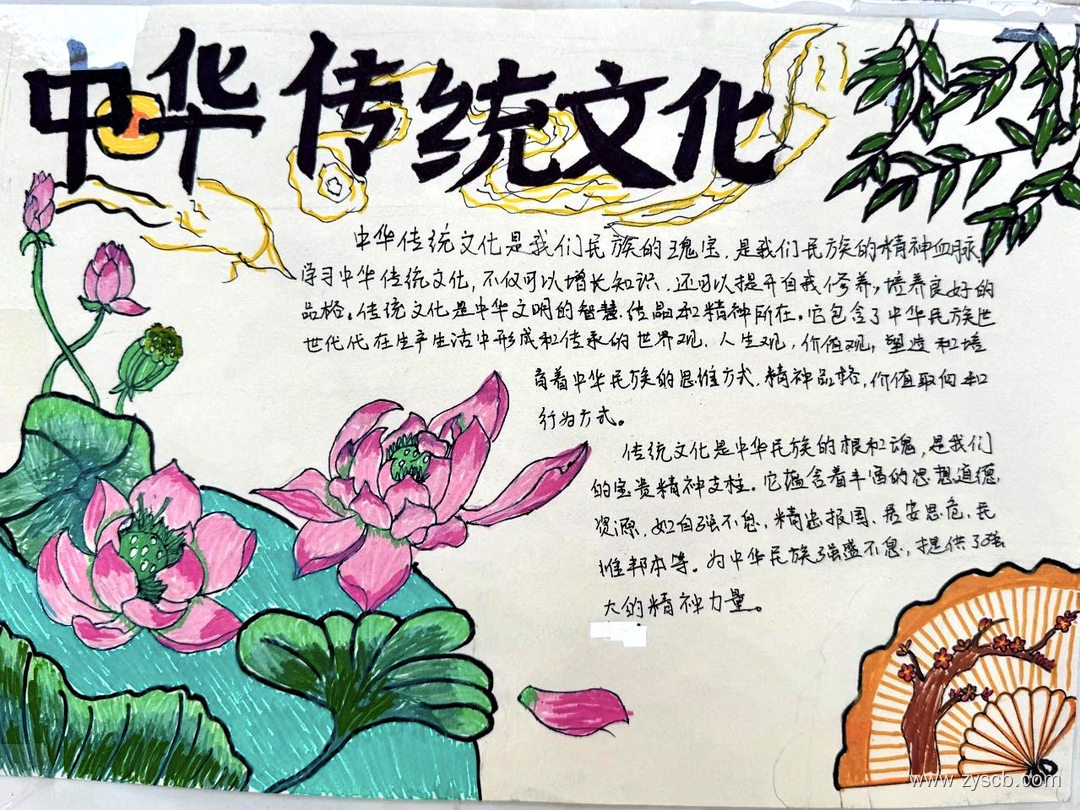 中华传统文化
中华传统文化是我们民族的瑰宝，是我们民族的精神血脉，
学习中华传统文化，不仅可以增长知识，还可以提升自我修养，培养良好的
品格。传统文化是中华文明的智慧、结晶和精神所在。它包含了中华民族世
世代代在生产生活中形成和传承的世界观、人生观，价值观，塑造和培
育着中华民族的思维方式、精神品格，价值取向和
行为方式。
传统文化是中华民族的根和魂，是我们
的宝贵精神支柱。它蕴含着丰富的思想道德
资源，如自强不息，精忠报国、居安思危、民
惟邦本等。为中华民族强盛不息，提供了强
大的精神力量。
www.zyscb.com